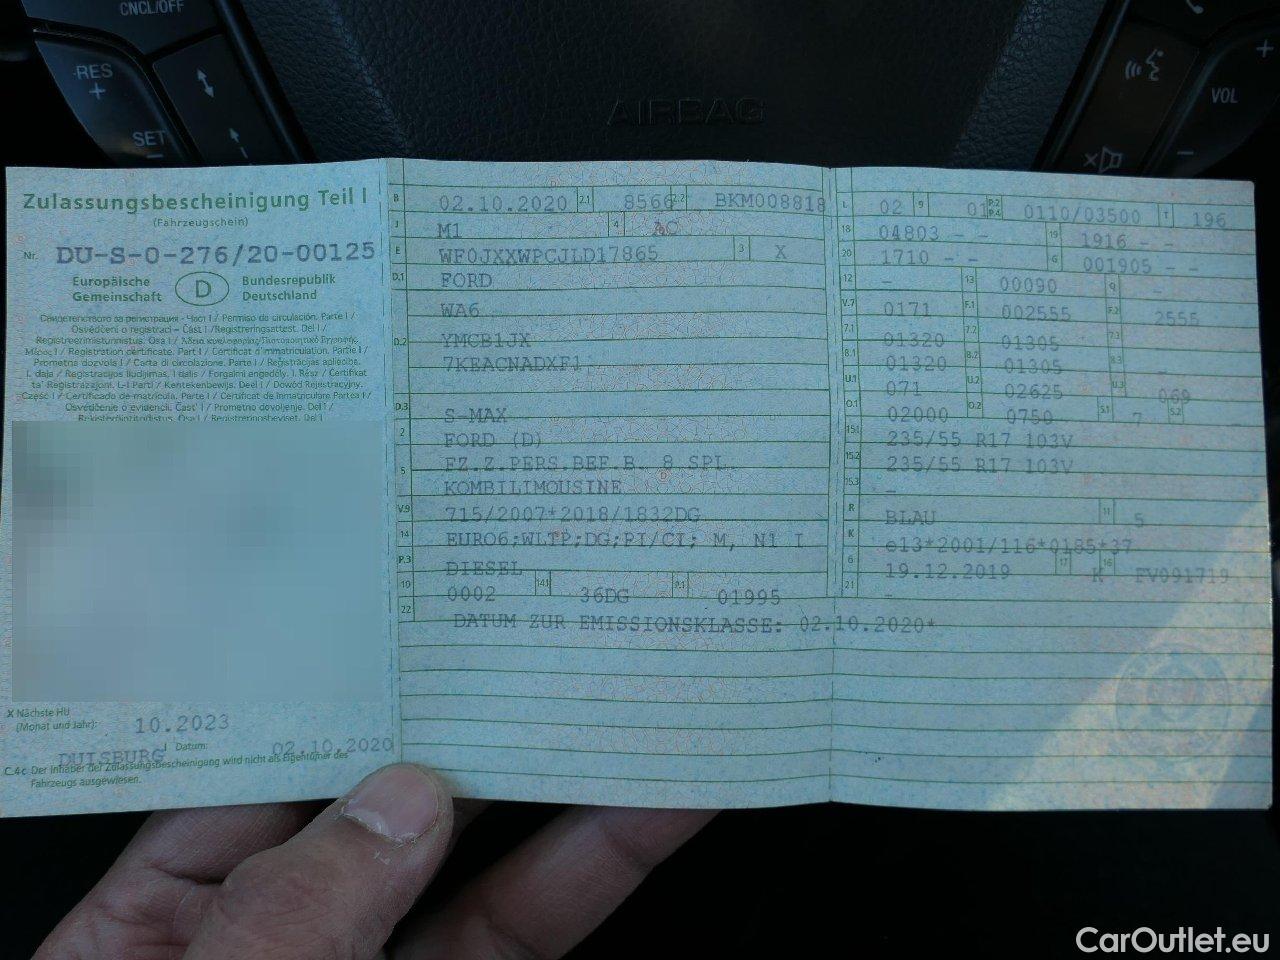 CNCL/OFF
RES
+
SET
−
AIRBAG
VOL
+
−
Zulassungsbescheinigung Teil I
(Fahrzeugschein)
Nr. DU-S-0-276/20-00125
Europäische Gemeinschaft
D
Bundesrepublik Deutschland
Свидетелство за регистрация - Част I / Permiso de circulación. Parte I /
Osvědčení o registraci – Část I / Registreringsattest. Del I /
Registreerimistunnistus. Osa I / Άδεια κυκλοφορίας/Πιστοποιητικό Εγγραφής.
Μέρος I / Registration certificate. Part I / Certificat d'immatriculation. Partie I /
Prometna dozvola I / Carta di circolazione. Parte I / Reģistrācijas apliecība.
I. daļa / Registracijos liudijimas. I dalis / Forgalmi engedély. I. Rész / Certifikat
ta' Reġistrazzjoni. L-I Parti / Kentekenbewijs. Deel I / Dowód Rejestracyjny.
Część I / Certificado de matrícula. Parte I / Certificat de înmatriculare Partea I /
Osvedčenie o evidencii. Časť I / Prometno dovoljenje. Del I /
Rekisteröintitodistus. Osa I / Registreringsbeviset. Del I
X Nächste HU
(Monat und Jahr): 10.2023
DUISBURG
Datum: 02.10.2020
C.4c Der Inhaber der Zulassungsbescheinigung wird nicht als Eigentümer des
Fahrzeugs ausgewiesen.
B 02.10.2020 2.1 8566 2.2 BKM008818
J M1 4 AC
E WF0JXXWPCJLD17865 3 X
D.1 FORD
WA6
D.2 YMCB1JX
7KEACNADXF1
D.3 S-MAX
2 FORD (D)
5 FZ.Z.PERS.BEF.B. 8 SPL.
KOMBILIMOUSINE
V.9 715/2007*2018/1832DG
14 EURO6;WLTP;DG;PI/CI; M, N1 I
P.3 DIESEL
10 0002 14.1 36DG P.1 01995
22 DATUM ZUR EMISSIONSKLASSE: 02.10.2020*
L 02 9 01 P.2 P.4 0110/03500 T 196
18 04803 - - 19 1916 - -
20 1710 - - G 001905 - -
12 - 13 00090 Q -
V.7 0171 F.1 002555 F.2 2555
7.1 01320 7.2 01305 7.3
8.1 01320 8.2 01305 8.3
U.1 071 U.2 02625 U.3 069
O.1 02000 O.2 0750 S.1 7 S.2 -
15.1 235/55 R17 103V
15.2 235/55 R17 103V
15.3 -
R BLAU 11 5
K e13*2001/116*0185*37
6 19.12.2019 17 K 16 FV091719
21 -
CarOutlet.eu